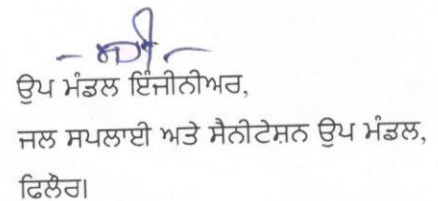 - ਸਹੀ -
ਉਪ ਮੰਡਲ ਇੰਜੀਨੀਅਰ,
ਜਲ ਸਪਲਾਈ ਅਤੇ ਸੈਨੀਟੇਸ਼ਨ ਉਪ ਮੰਡਲ,
ਫਿਲੌਰ।